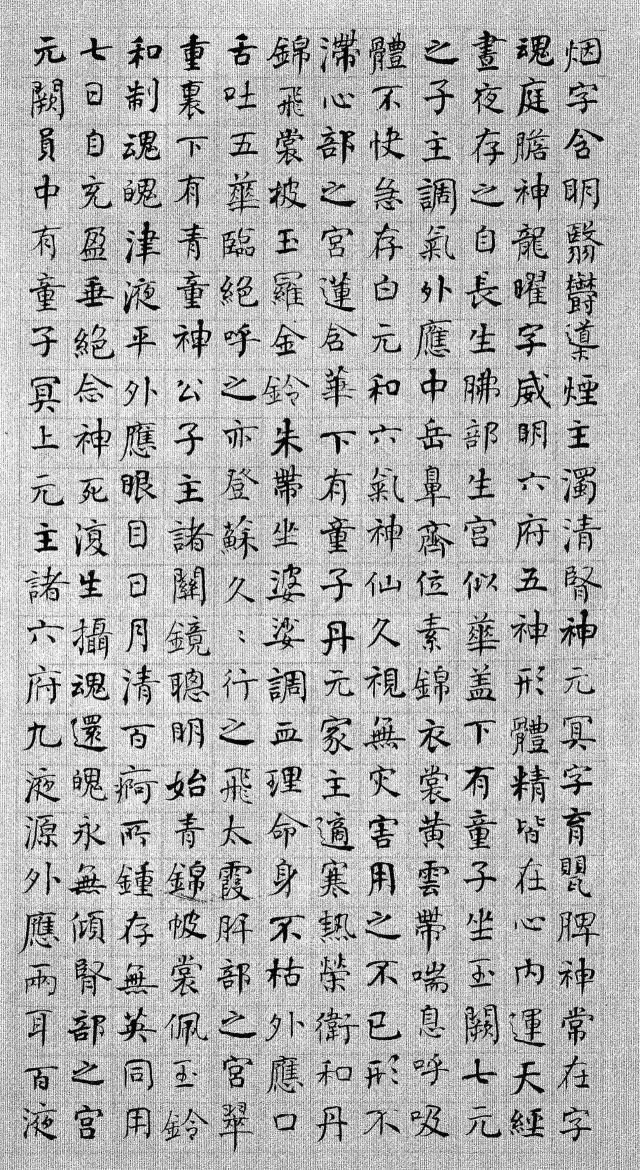 烟字含明翳欝導煙主濁清腎神元冥字育嬰脾神常在字
魂庭膽神龍曜字威明六府五神形體精皆在心內運天經
晝夜存之自長生肺部生宮似華盖下有童子坐玉闕七元
之子主調氣外應中岳鼻齊位素錦衣裳黃雲帶喘息呼吸
體不快急存白元和六氣神仙久視無灾害用之不已形不
滯心部之宮蓮含華下有童子丹元家主適寒熱榮衛和丹
錦飛裳披玉羅金鈴朱帶坐婆娑調血理命身不枯外應口
舌吐五華臨絕呼之亦登蘇久〻行之飛太霞肝部之宮翠
重裏下有青童神公子主諸關鏡聰明始青錦帔裳佩玉鈴
和制魂魄津液平外應眼目日月清百痾所鍾存無英同用
七日自充盈垂絕念神死復生攝魂還魄永無傾腎部之宮
元闕員中有童子冥上元主諸六府九液源外應兩耳百液